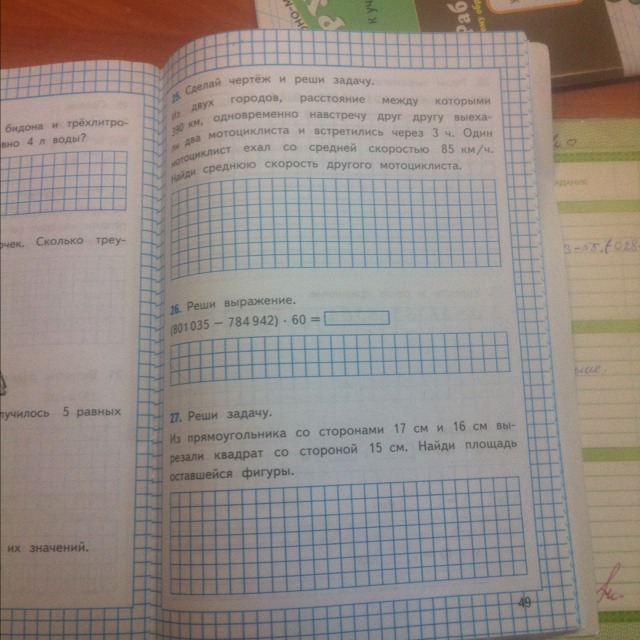 бидона и трёхлитро-
вно 4 л воды?
очек. Сколько треу-
лучилось 5 равных
их значений.
25. Сделай чертёж и реши задачу.
Из двух городов, расстояние между которыми
390 км, одновременно навстречу друг другу выеха-
ли два мотоциклиста и встретились через 3 ч. Один
мотоциклист ехал со средней скоростью 85 км/ч.
Найди среднюю скорость другого мотоциклиста.
26. Реши выражение.
(801 035 − 784 942) · 60 =
27. Реши задачу.
Из прямоугольника со сторонами 17 см и 16 см вы-
резали квадрат со стороной 15 см. Найди площадь
оставшейся фигуры.
49